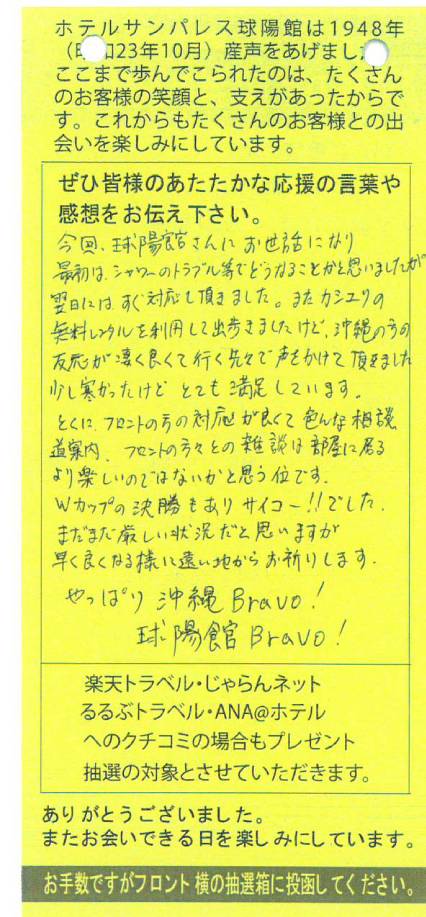 ホテルサンパレス球陽館は1948年
（昭和23年10月）産声をあげました。
ここまで歩んでこられたのは、たくさん
のお客様の笑顔と、支えがあったからで
す。これからもたくさんのお客様との出
会いを楽しみにしています。
ぜひ皆様のあたたかな応援の言葉や
感想をお伝え下さい。
今回、球陽館さんにお世話になり
最初は、シャワーのトラブル等でどうなることかと思いましたが
翌日には、すぐ対応して頂きました。またカシユリの
無料レンタルを利用して出歩きましたけど、沖縄の方の
反応が凄く良くて行く先々で声をかけて頂きました
少し寒かったけど とても満足しています。
とくに、フロントの方の対応が良くて色んな相談
道案内、フロントの方々との雑談は部屋に居る
より楽しいのではないかと思う位です。
Wカップの決勝もありサイコー!!でした.
まだまだ厳しい状況だと思いますが
早く良くなる様に遠い地からお祈りします.
やっぱり沖縄 Bravo!
球陽館 Bravo!
楽天トラベル・じゃらんネット
るるぶトラベル・ANA@ホテル
へのクチコミの場合もプレゼント
抽選の対象とさせていただきます。
ありがとうございました。
またお会いできる日を楽しみにしています。
お手数ですがフロント横の抽選箱に投函してください。